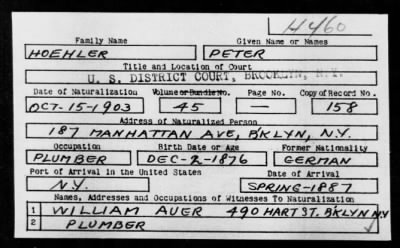 H460
Family Name Given Name or Names
HOEHLER PETER
Title and Location of Court
U. S. DISTRICT COURT, BROOKLYN, N.Y.
Date of Naturalization Volume or Bundle No. Page No. Copy of Record No.
OCT-15-1903 45 — 158
Address of Naturalized Person
187 MANHATTAN AVE, B'KLYN, N.Y.
Occupation Birth Date or Age Former Nationality
PLUMBER DEC-2-1876 GERMAN
Port of Arrival in the United States Date of Arrival
N.Y. SPRING-1887
Names, Addresses and Occupations of Witnesses To Naturalization
1 WILLIAM AUER 490 HART ST. B'KLYN NY
2 PLUMBER